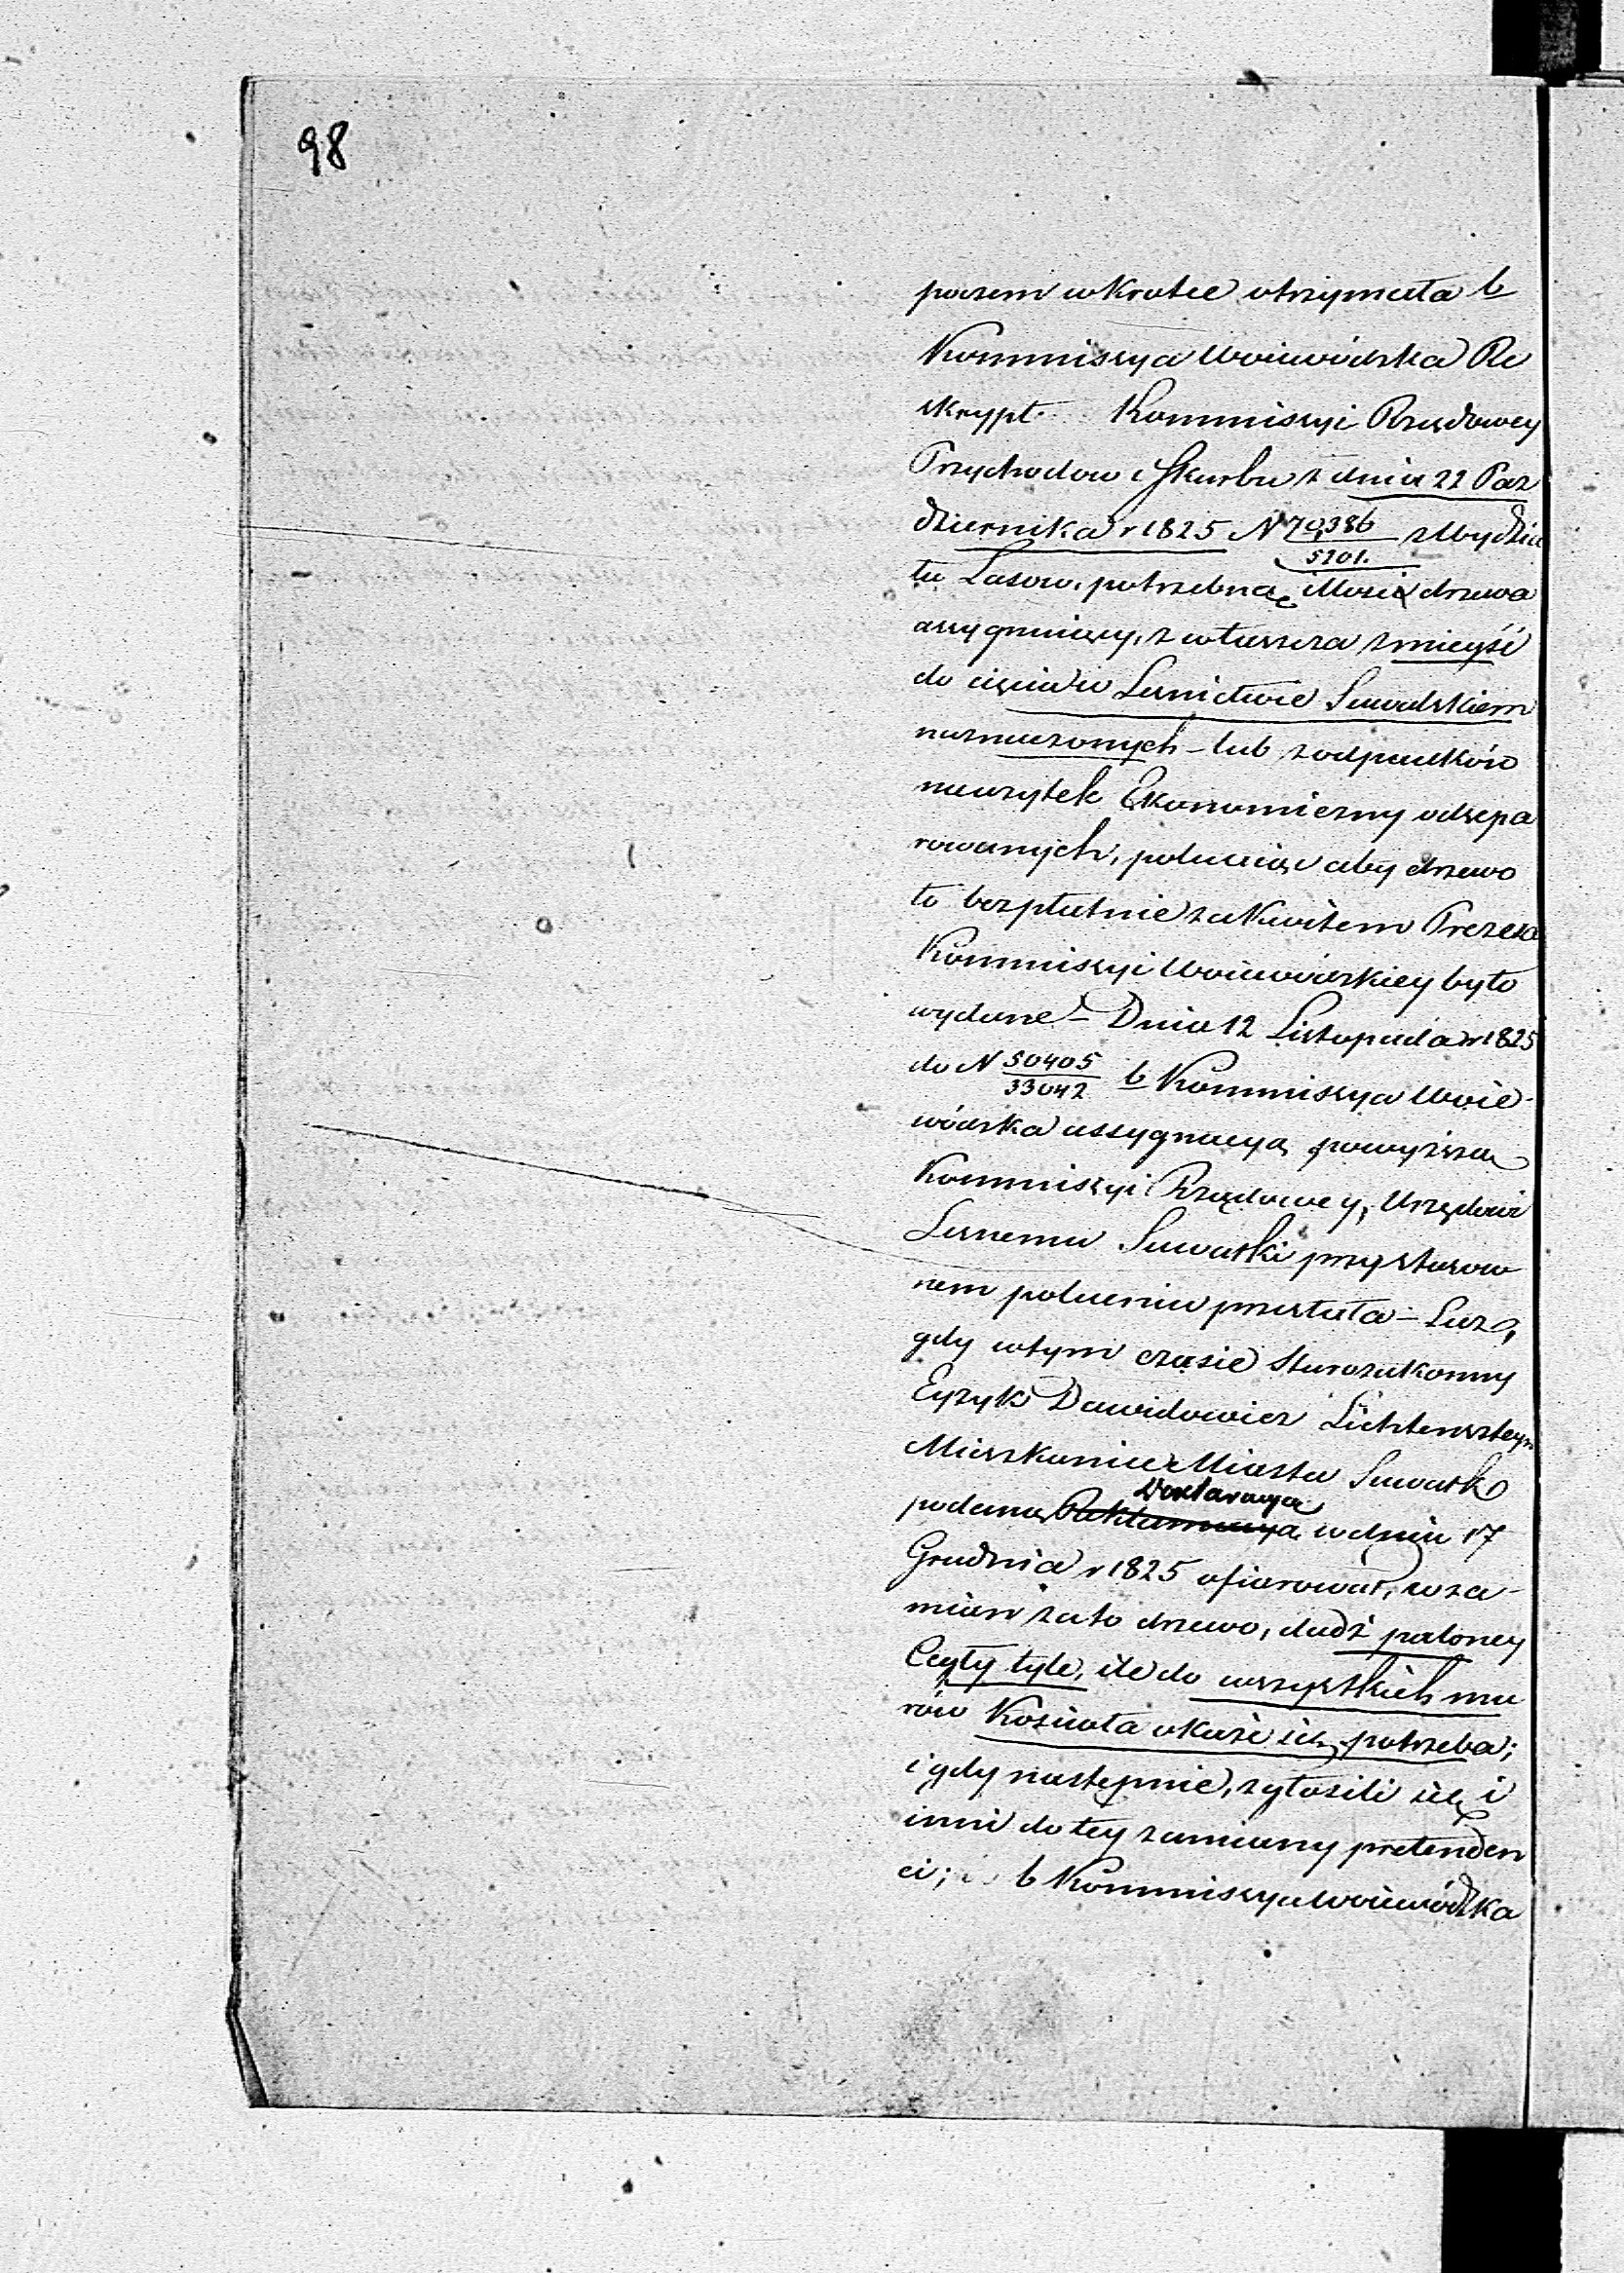 98
poczem wkrotce otrzymała b
Kommissya Woiewódzka Re
skrypt Kommissyi Rządowey
Przychodow i Skarbu z dnia 22 Paz
dziernika r 1825 N 70,386/5201. z Wydzia
łu Lasow, potrzebną illość drzewa
assygnuiący, z właszcza z mieysc
do cięcia w Lesnictwie Suwalskiem
naznaczonych – lub z odpadków
na użytek Ekonomiczny odsepa
rowanych, polecaiąc aby drzewo
to bezpłatnie za Kwitem Prezesa
Kommissyi Woiewódzkiey było
wydane – Dnia 12 Listopada r 1825
do N 50405/33042 b Kommissya Woie-
wódzka assygnacyą powyższą
Kommissyi Rządowey, Urzędowi
Lesnemu Suwałki przy stosow
nem poleceniu przesłała – Lecz,
gdy w tym czasie Starozakonny
Eyzyk Dawidowicz Lichtenszteyn
Mieszkaniec Miasta Suwałk
Deklaracyą
podaną w dniu 17
Grudnia r 1825 ofiarował, w za-
mian za to drzewo, dadź paloney
Cegły tyle, ile do wszystkich mu
rów Kościoła okaże się potrzeba;
i gdy następnie, zgłosili się i
inni do tey zamiany pretenden
ci; b Kommissya Woiewódzka